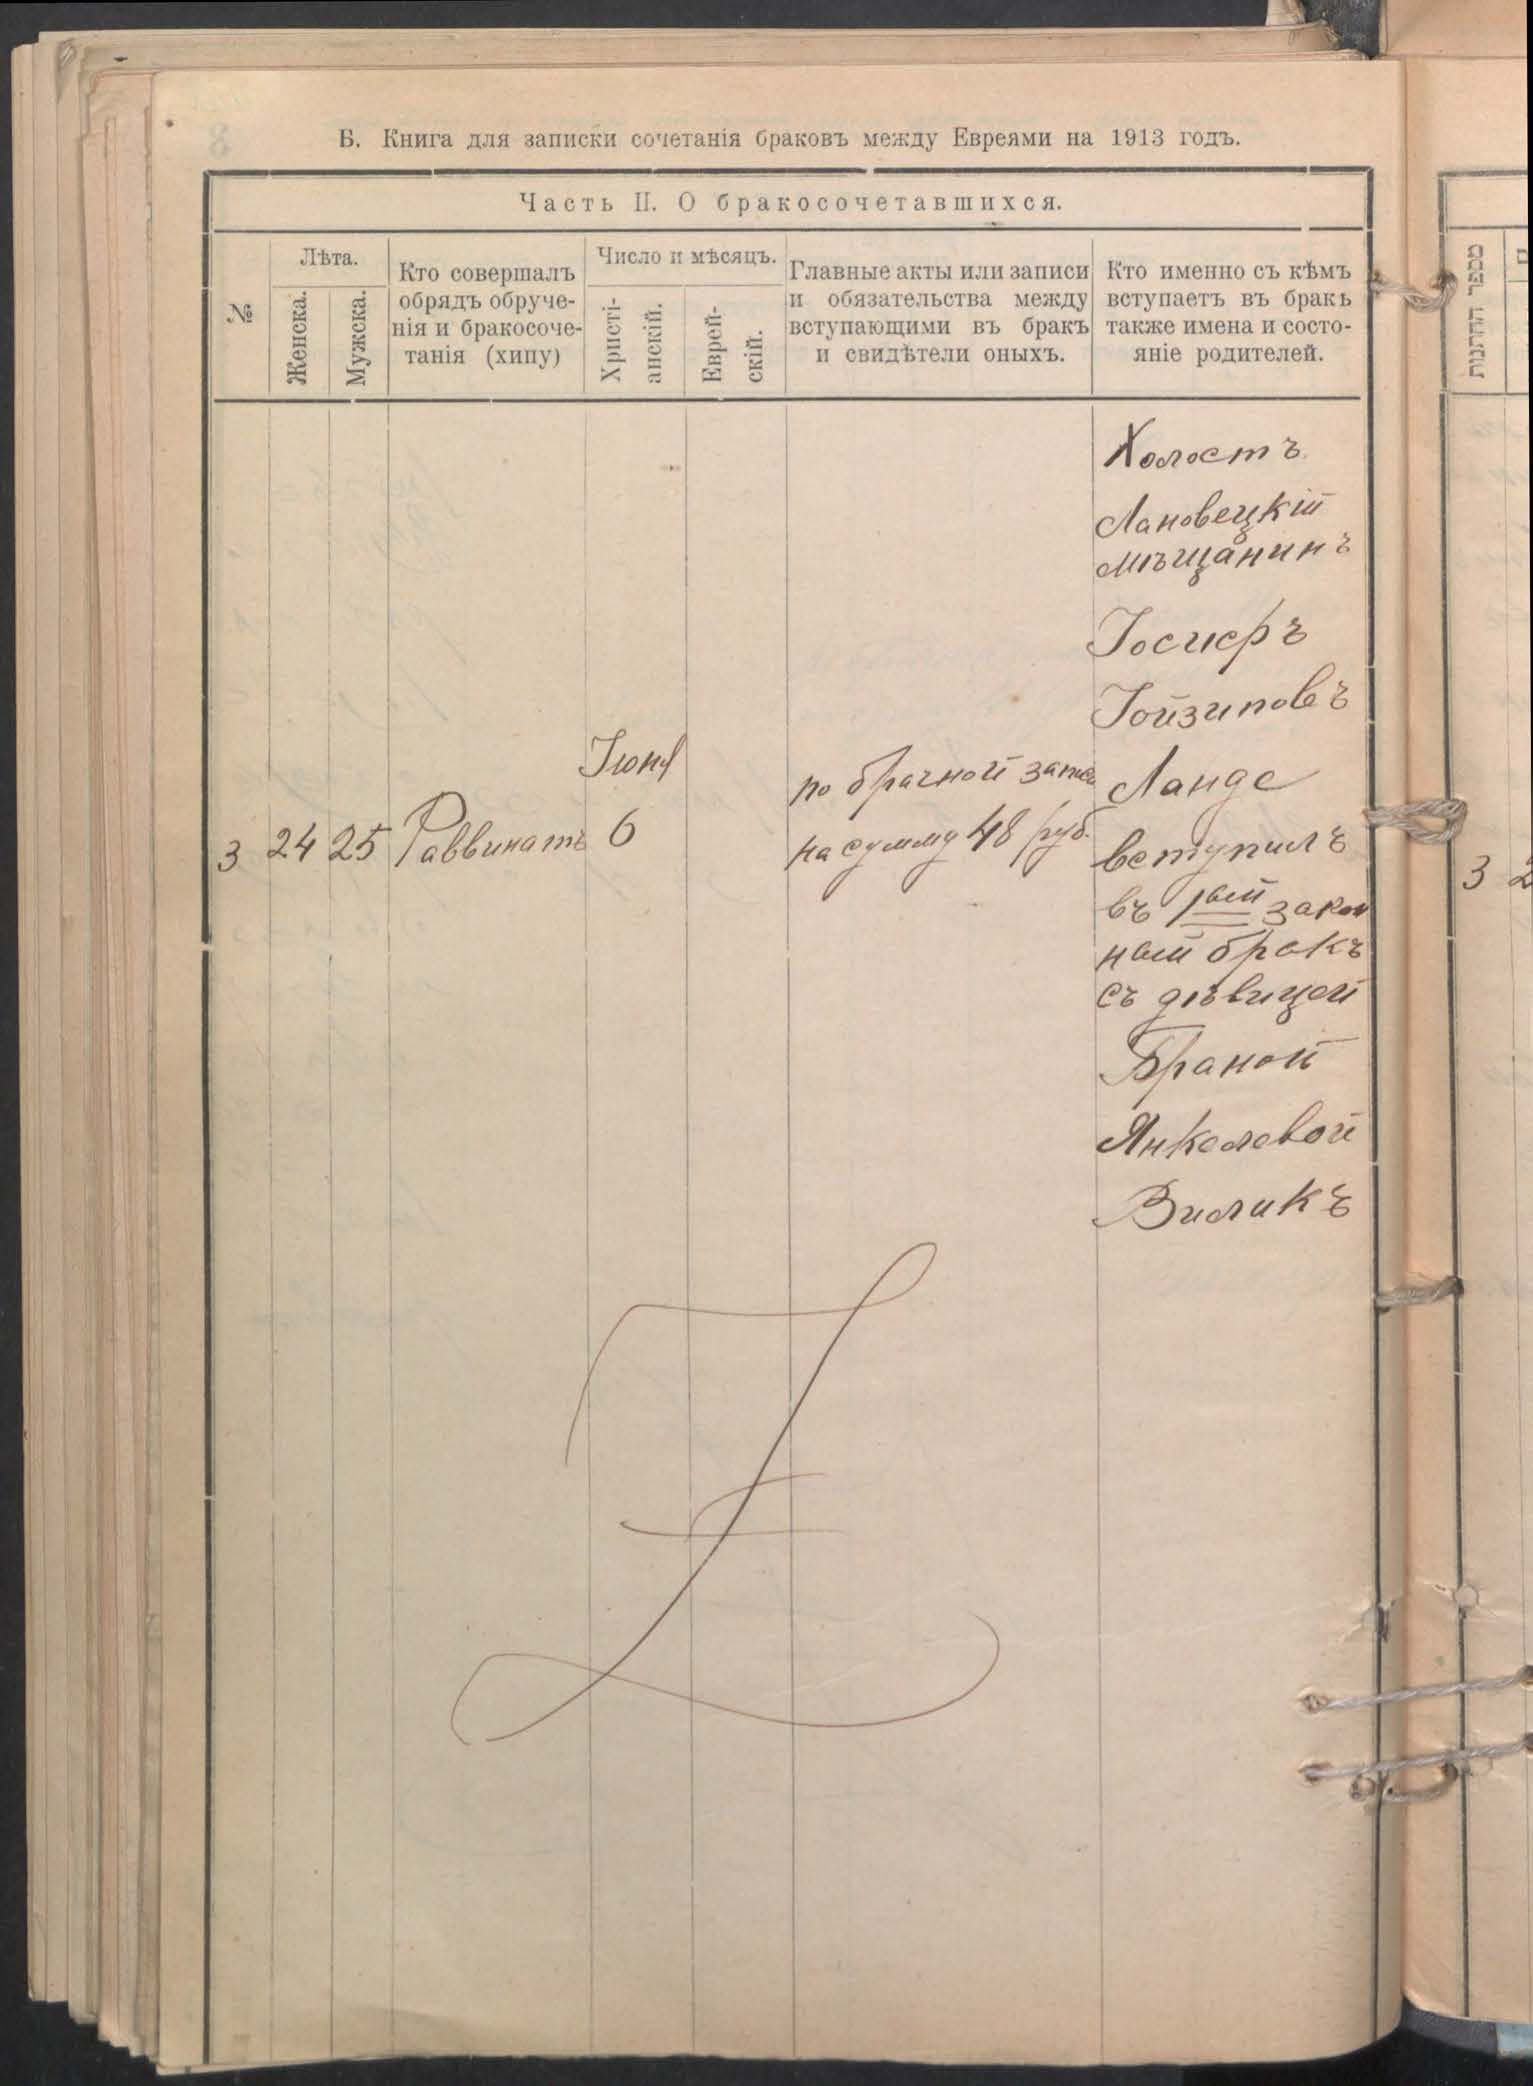 Б. Книга для записки сочетанія браковъ между Евреями на 1913 годъ.
Часть II. О бракосочетавшихся.
№
Лѣта.
Женска.
Мужска.
Кто совершалъ
обрядъ обруче-
нія и бракосоче-
танія (хипу)
Число и мѣсяцъ.
Христі-
анскій.
Еврей-
скій.
Главные акты или записи
и обязательства между
вступающими въ бракъ
и свидѣтели оныхъ.
Кто именно съ кѣмъ
вступаетъ въ бракъ
также имена и состо-
яніе родителей.
3
24
25
Раввинатъ
Іюня
6
по брачной записи
на сумму 48 руб.
Холостъ
Лановецкій
мѣщанинъ
Іосифъ
Іойзиповъ
Ланде
вступилъ
въ 1ый закон
ный бракъ
съ дѣвицей
Браной
Янкелевой
Виликъ
מספר החתנות
3